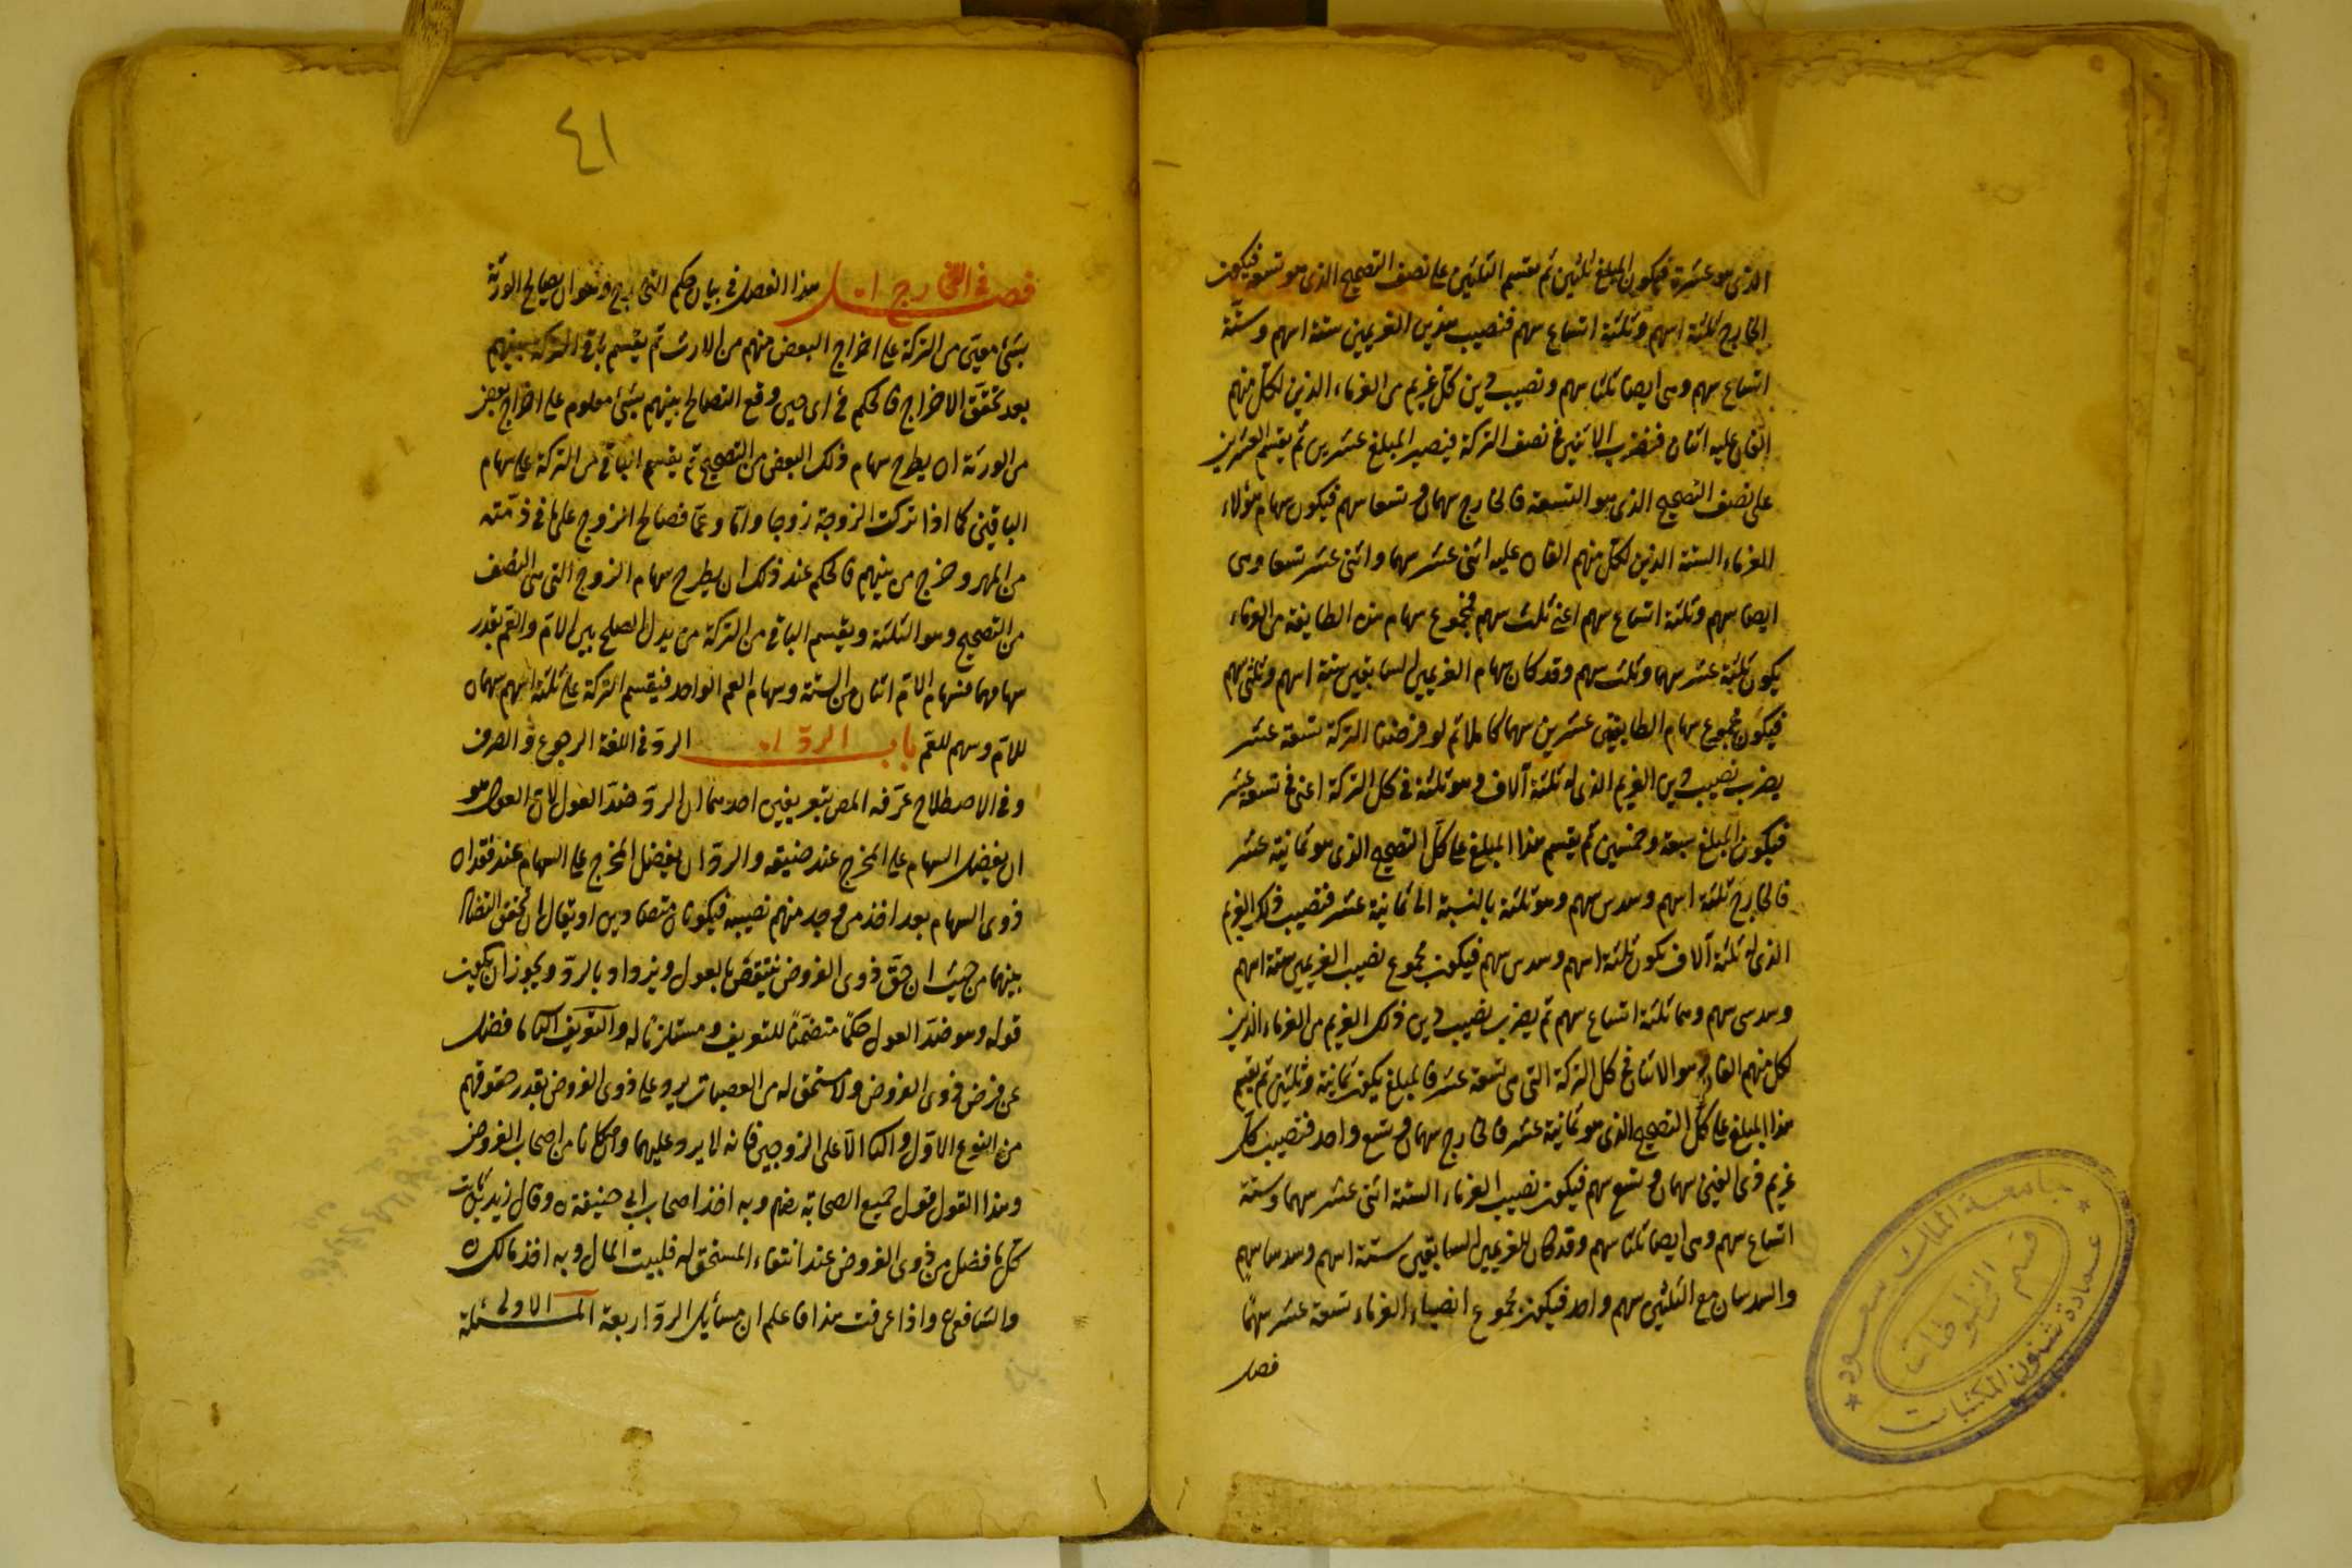 الذى هو عشرة فيكون المبلغ ثلثين ثم يقسم الثلثين على نصف التصحيح الذى هو تسعة فيكون
الخارج ثلثة اسهم وثلثة اتساع سهم فنصيب هذين الغريمين ستة اسهم وستة
اتساع سهم وهى ايضا ثلثا سهم ونصيب دين كل غريم من الغرماء الذين لكل منهم
الفان عليه اثنان فنضرب الاثنين فى نصف التركة فيصير المبلغ عشرين ثم يقسم العشرين
على نصف التصحيح الذى هو التسعة فالخارج سهمان وتسعا سهم فيكون سهام هؤلاء
الغرماء الستة الذين لكل منهم الفان عليه اثنى عشر سهما واثنى عشر تسعا وهى
ايضا سهم وثلثة اتساع سهم اعنى ثلث سهم فمجموع سهام هذه الطايفة من الغرماء
يكون ثلثة عشر سهما وثلث سهم وقد كان سهام الغريمين السابقين ستة اسهم وثلثى سهم
فيكون مجموع سهام الطايفتين عشرين سهما كاملا ثم لو فرضنا التركة تسعة عشر
يضرب نصيب دين الغريم الذى له ثلثة آلاف وهو ثلثة فى كل التركة اعنى فى تسعة عشر
فيكون المبلغ سبعة وخمسين ثم يقسم هذا المبلغ على كل التصحيح الذى هو ثمانية عشر
فالخارج ثلثة اسهم وسدس سهم وهو ثلثة بالنسبة الى ثمانية عشر فنصيب ذلك الغريم
الذى له ثلثة آلاف يكون ثلثة اسهم وسدس سهم فيكون مجموع نصيب الغريمين ستة اسهم
وسدسى سهم وهما ثلثة اتساع سهم ثم يضرب نصيب دين ذلك الغريم من الغرماء الذين
لكل منهم الفان وهو الاثنان فى كل التركة التى هى تسعة عشر فالمبلغ يكون ثمانية وثلثين ثم يقسم
هذا المبلغ على كل التصحيح الذى هو ثمانية عشر فالخارج سهمان وتسع واحد فنصيب كل
غريم ذى الفين سهمان وتسع سهم فيكون نصيب الغرماء الستة اثنى عشر سهما وستة
اتساع سهم وهى ايضا ثلثا سهم وقد كان للغريمين السابقين ستة اسهم وسدسا سهم
والسدسان مع الثلثين سهم واحد فيكون مجموع انصباء الغرماء تسعة عشر سهما
فصل
جامعة الملك سعود
عمادة شئون المكتبات
قسم المخطوطات
٤١
فصل فى التخارج هذا الفصل فى بيان حكم التخارج وهو ان يصالح الورثة
بشئ معين من التركة على اخراج البعض منهم من الارث ثم يقسم باقى التركة بينهم
بعد تحقق الاخراج فالحكم فى اى حين وقع التصالح بينهم بشئ معلوم على اخراج بعض
من الورثة ان يطرح سهام ذلك البعض من التصحيح ثم يقسم الباقى من التركة على سهام
الباقين كما اذا تركت الزوجة زوجا واما وعما فصالح الزوج على ما فى ذمته
من المهر وخرج من بينهم فالحكم عند ذلك ان يطرح سهام الزوج التى هى النصف
من التصحيح وهو الثلثة ويقسم الباقى من التركة من بدل الصلح بين الام والعم بقدر
سهامهما فسهام الام اثنان من الستة وسهام العم الواحد فيقسم التركة على ثلثة اسهم سهمان
للام وسهم للعم باب الرد الرد فى اللغة الرجوع والصرف
وفى الاصطلاح عرفه المص بتعريفين احدهما ان الرد ضد العول لان العول هو
ان يفضل السهام على المخرج عند ضيقه والرد ان يفضل المخرج على السهام عند فقدان
ذوى السهام بعد اخذ من وجد منهم نصيبه فيكونان متضادين او يقال ان تحقق التضاد
بينهما من حيث ان حق ذوى الفروض ينتقص بالعول ويزداد بالرد ويجوز ان يكون
قوله وهو ضد العول حكما متضمنا للتعريف ومستلزما له والتعريف الثانى ما فضل
عن فرض ذوى الفروض ولا مستحق له من العصبات يرد على ذوى الفروض بقدر حقوقهم
من النوع الاول والثانى الا على الزوجين فانه لا يرد عليهما وان كانا من اصحاب الفروض
وهذا القول قول جميع الصحابة رضهم وبه اخذ اصحاب ابى حنيفة ره وقال زيد بن ثابت
كل ما فضل من ذوى الفروض عند انتفاء المستحق له فلبيت المال وبه اخذ مالك ره
والشافعى واذا عرفت هذا فاعلم ان مسائل الرد اربعة المسئلة الاولى